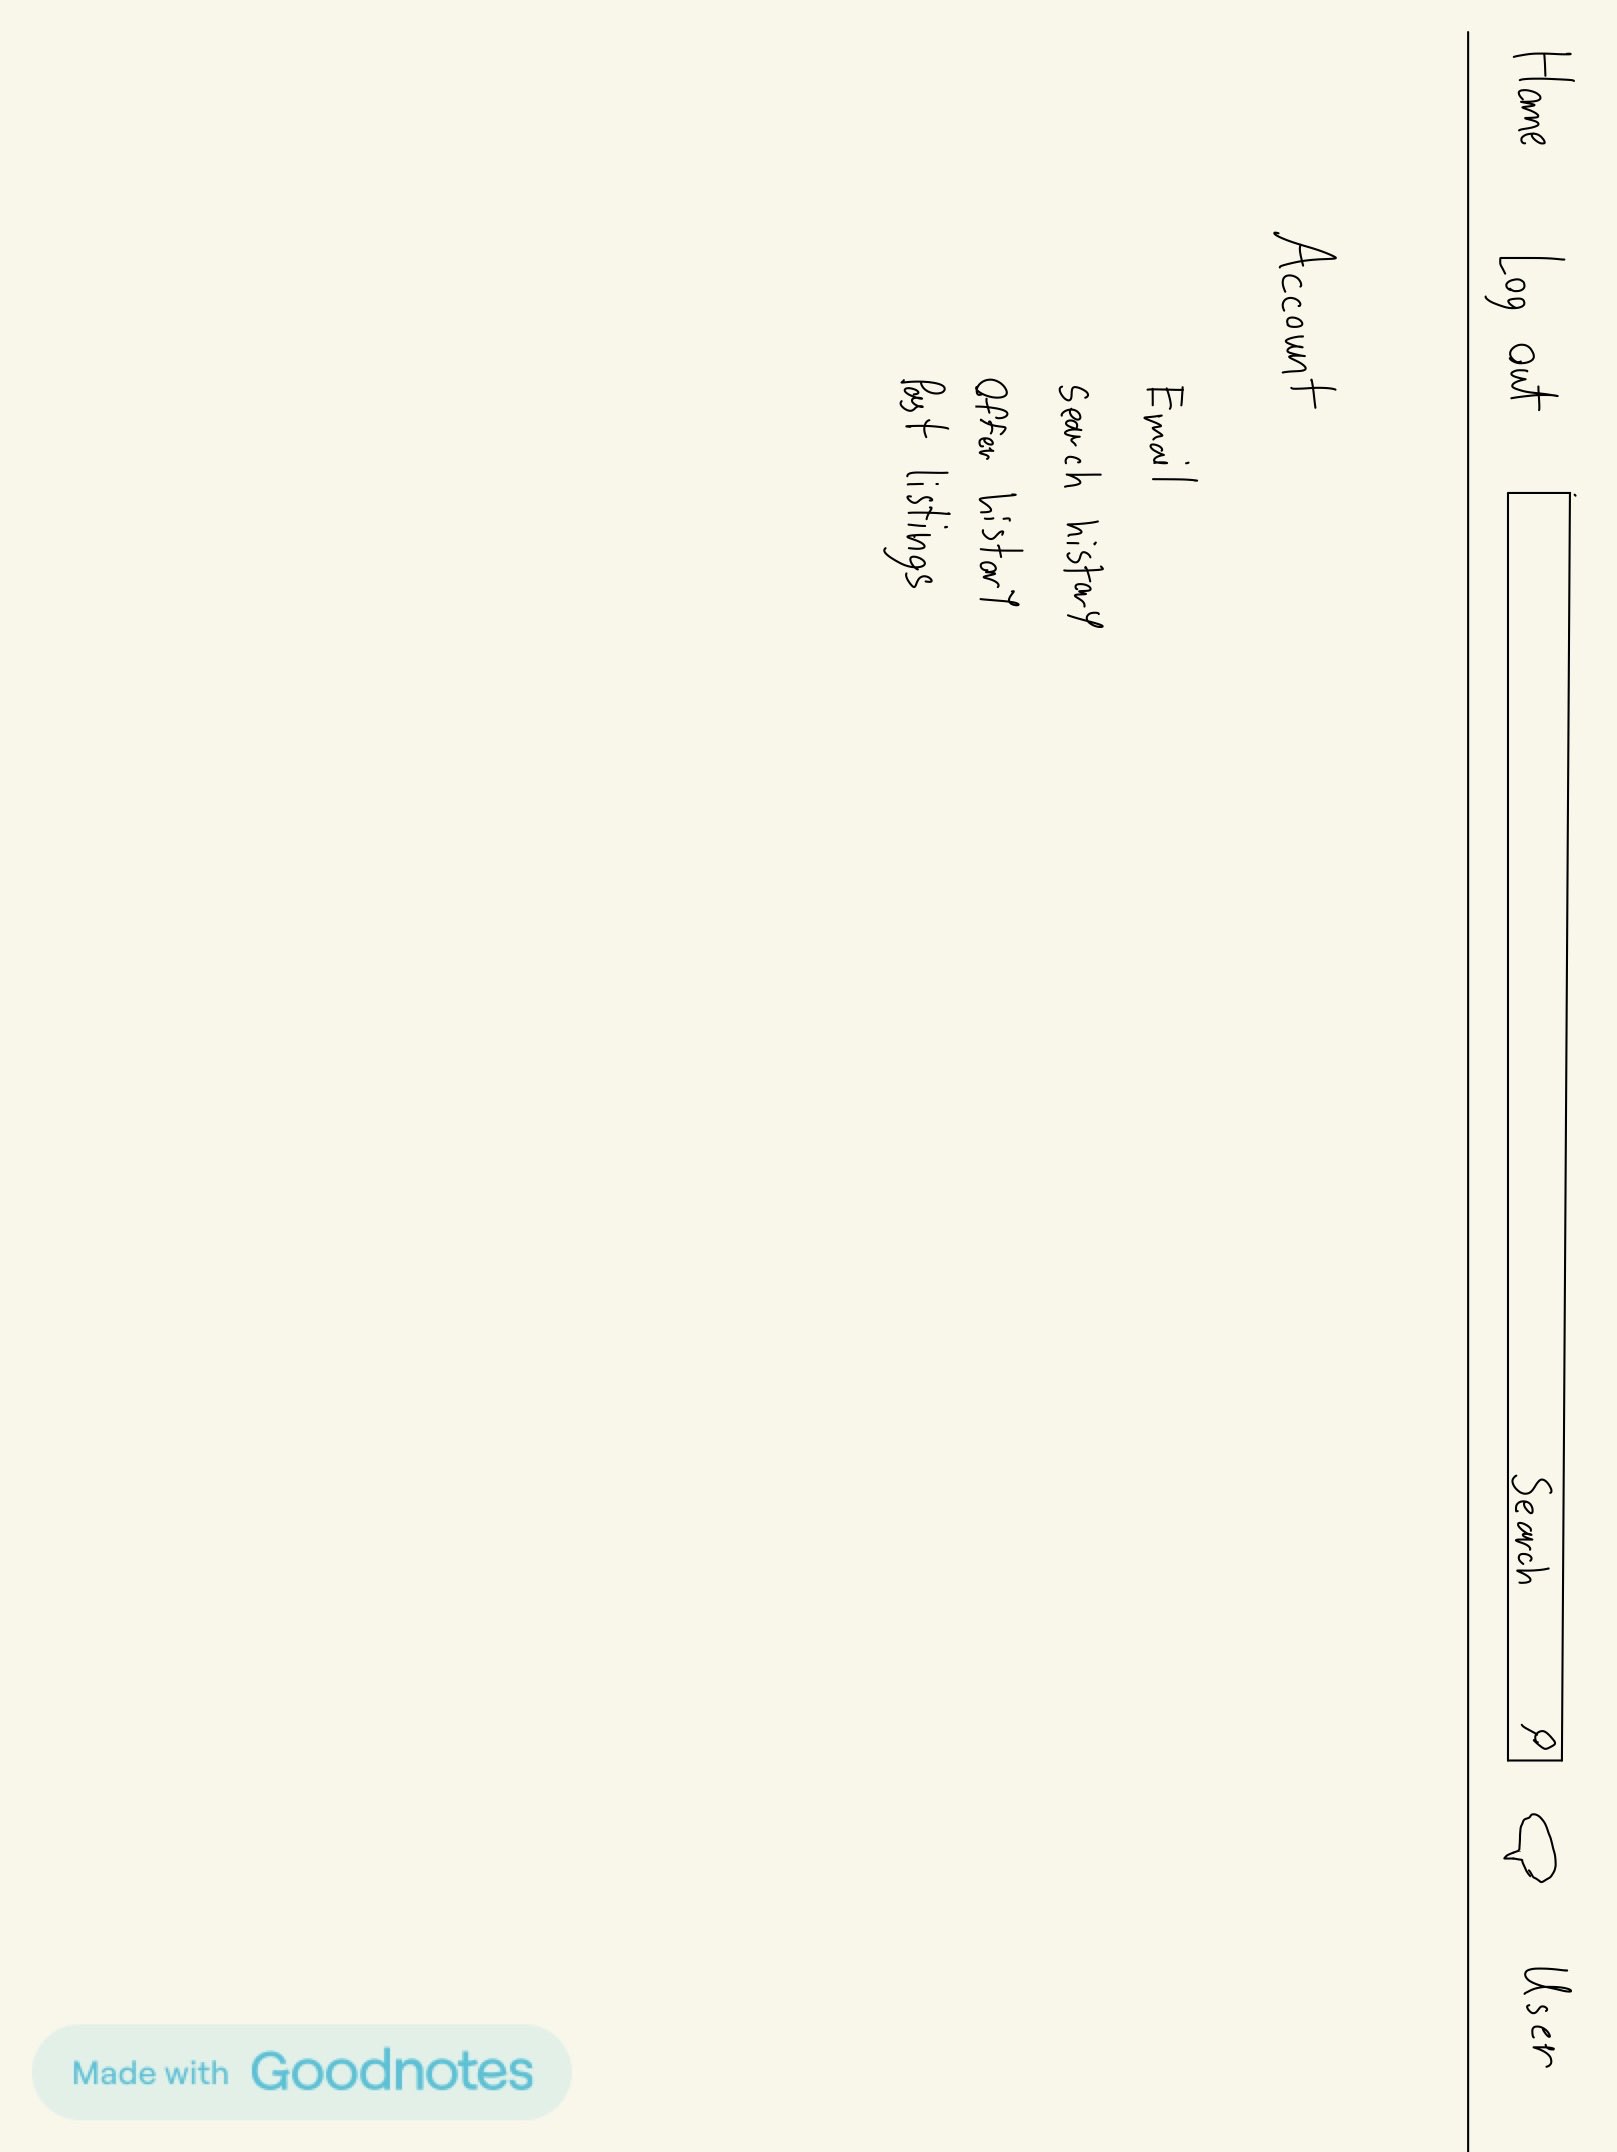 Home Log out Search User
Account
Email
Search history
Offer history
Past listings
Made with Goodnotes